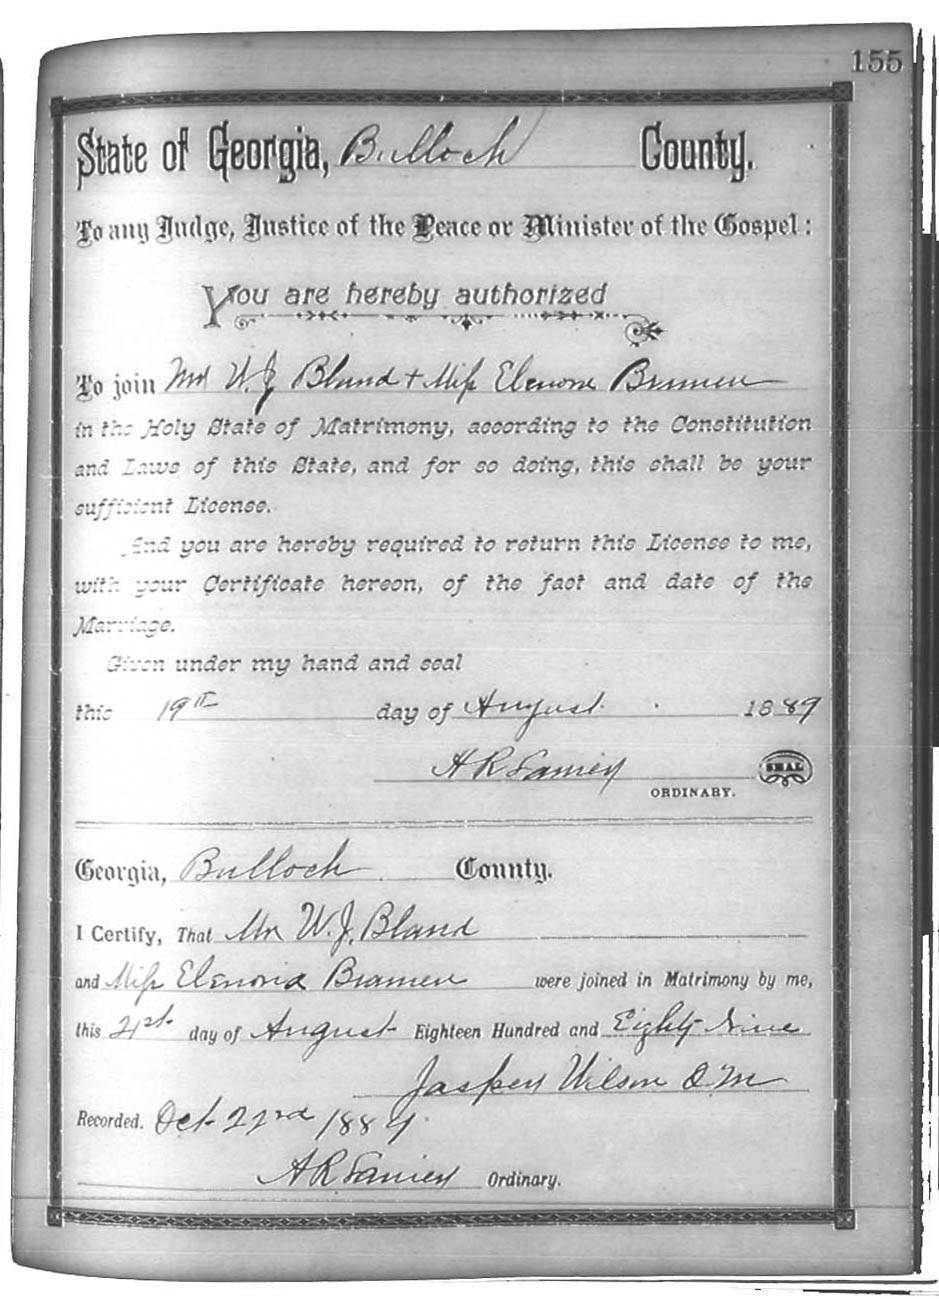 155
State of Georgia, Bulloch County.
To any Judge, Justice of the Peace or Minister of the Gospel:
You are hereby authorized
To join Mr W. J Bland + Miss Elenora Brannen
in the Holy State of Matrimony, according to the Constitution
and Laws of this State, and for so doing, this shall be your
sufficient License.
And you are hereby required to return this License to me,
with your Certificate hereon, of the fact and date of the
Marriage.
Given under my hand and seal
this 19th day of August 1889
A R Lanier SEAL
ORDINARY.
Georgia, Bulloch County.
I Certify, That Mr W. J. Bland
and Miss Elenora Brannen were joined in Matrimony by me,
this 21st day of August Eighteen Hundred and Eighty Nine
Jasper Wilson O. M
Recorded. Oct 22nd 1889.
A R Lanier Ordinary.